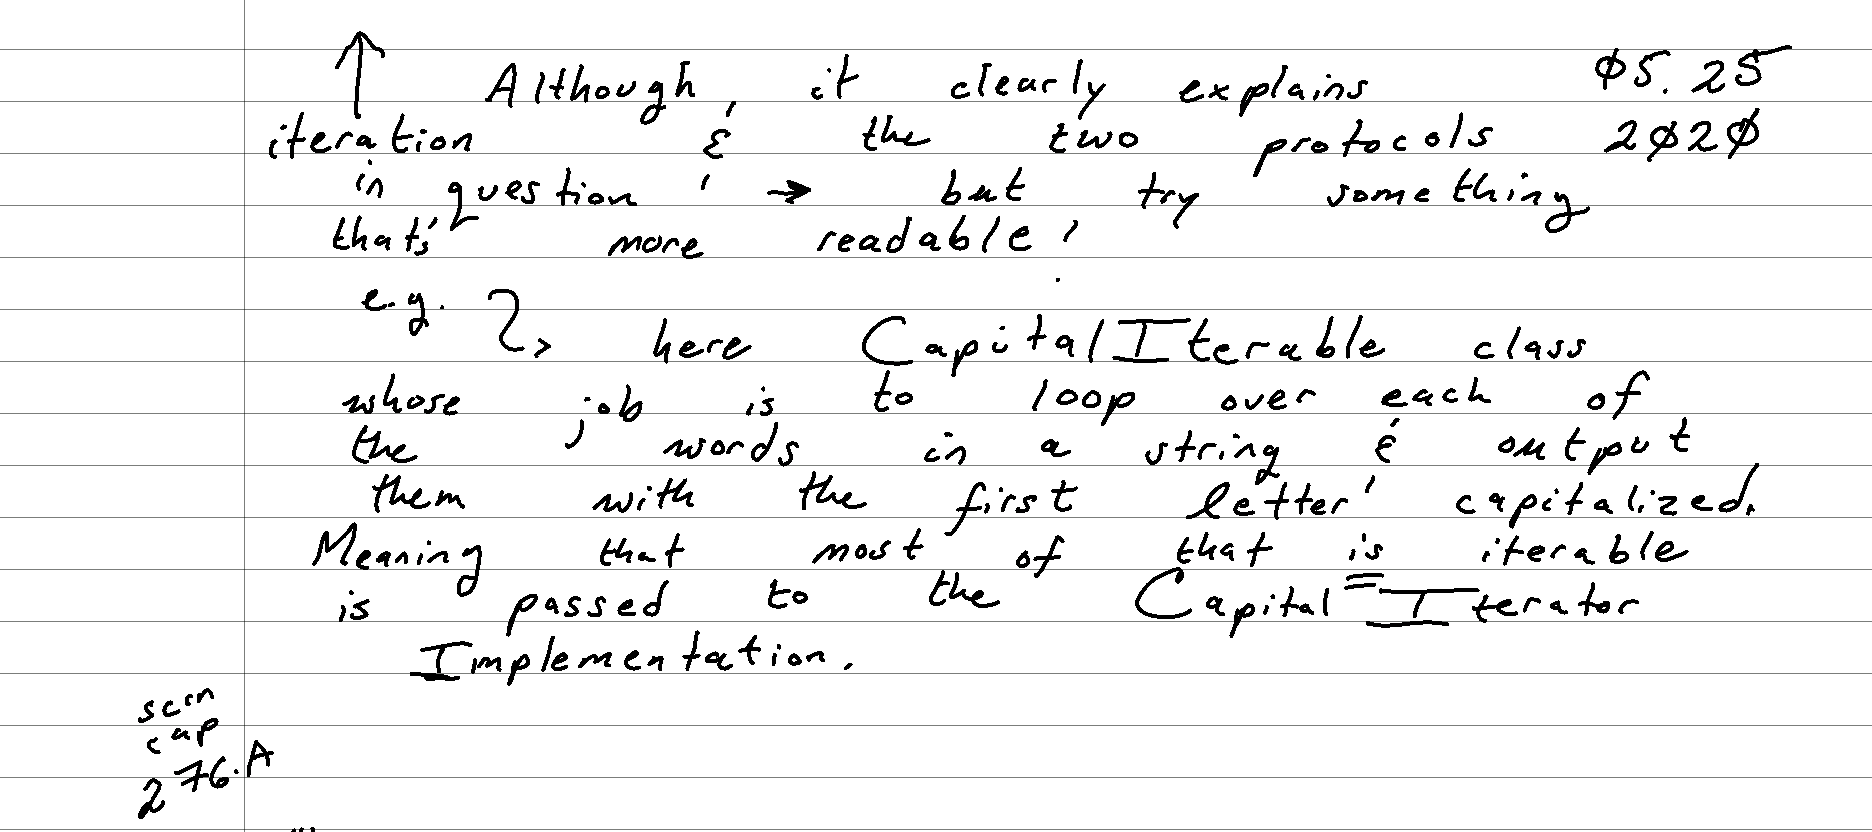 ↑ Although, it clearly explains 05.25
iteration & the two protocols 2020
in question, → but try something
that's more readable,
e.g. here CapitalIterable class
whose job is to loop over each of
the words in a string & output
them with the first letter capitalized.
Meaning that most of that is iterable
is passed to the Capital=Iterator
Implementation.
scrn
cap
276.A